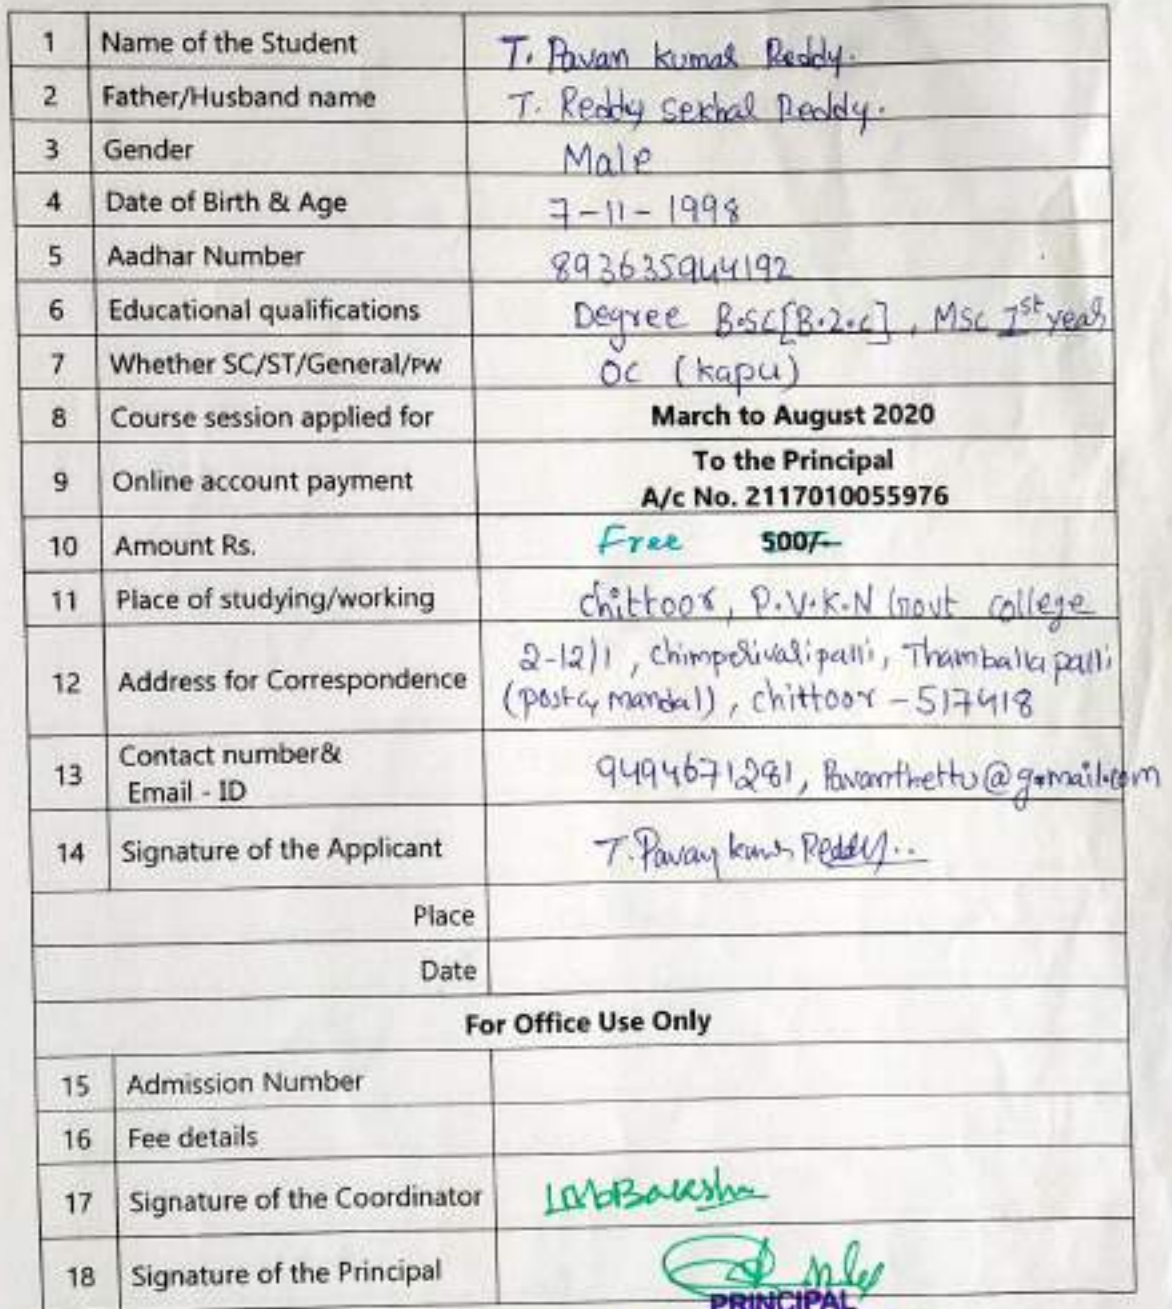 1 Name of the Student T. Pavan kumar Reddy.
2 Father/Husband name T. Reddy Sekhar Reddy.
3 Gender Male
4 Date of Birth & Age 7-11-1998
5 Aadhar Number 893635944192
6 Educational qualifications Degree B.SC[B.Z.C], MSC Ist year
7 Whether SC/ST/General/PW OC (kapu)
8 Course session applied for March to August 2020
9 Online account payment To the Principal
A/c No. 2117010055976
10 Amount Rs. Free 500/-
11 Place of studying/working chittoor, P.V.K.N Govt college
12 Address for Correspondence 2-12/1, Thamballapalli
(post & mandal), chittoor - 517418
13 Contact number&
Email - ID 9494671281, Pavanthettu@gmail.com
14 Signature of the Applicant T. Pavan kumar Reddy..
Place
Date
For Office Use Only
15 Admission Number
16 Fee details
17 Signature of the Coordinator
18 Signature of the Principal
PRINCIPAL